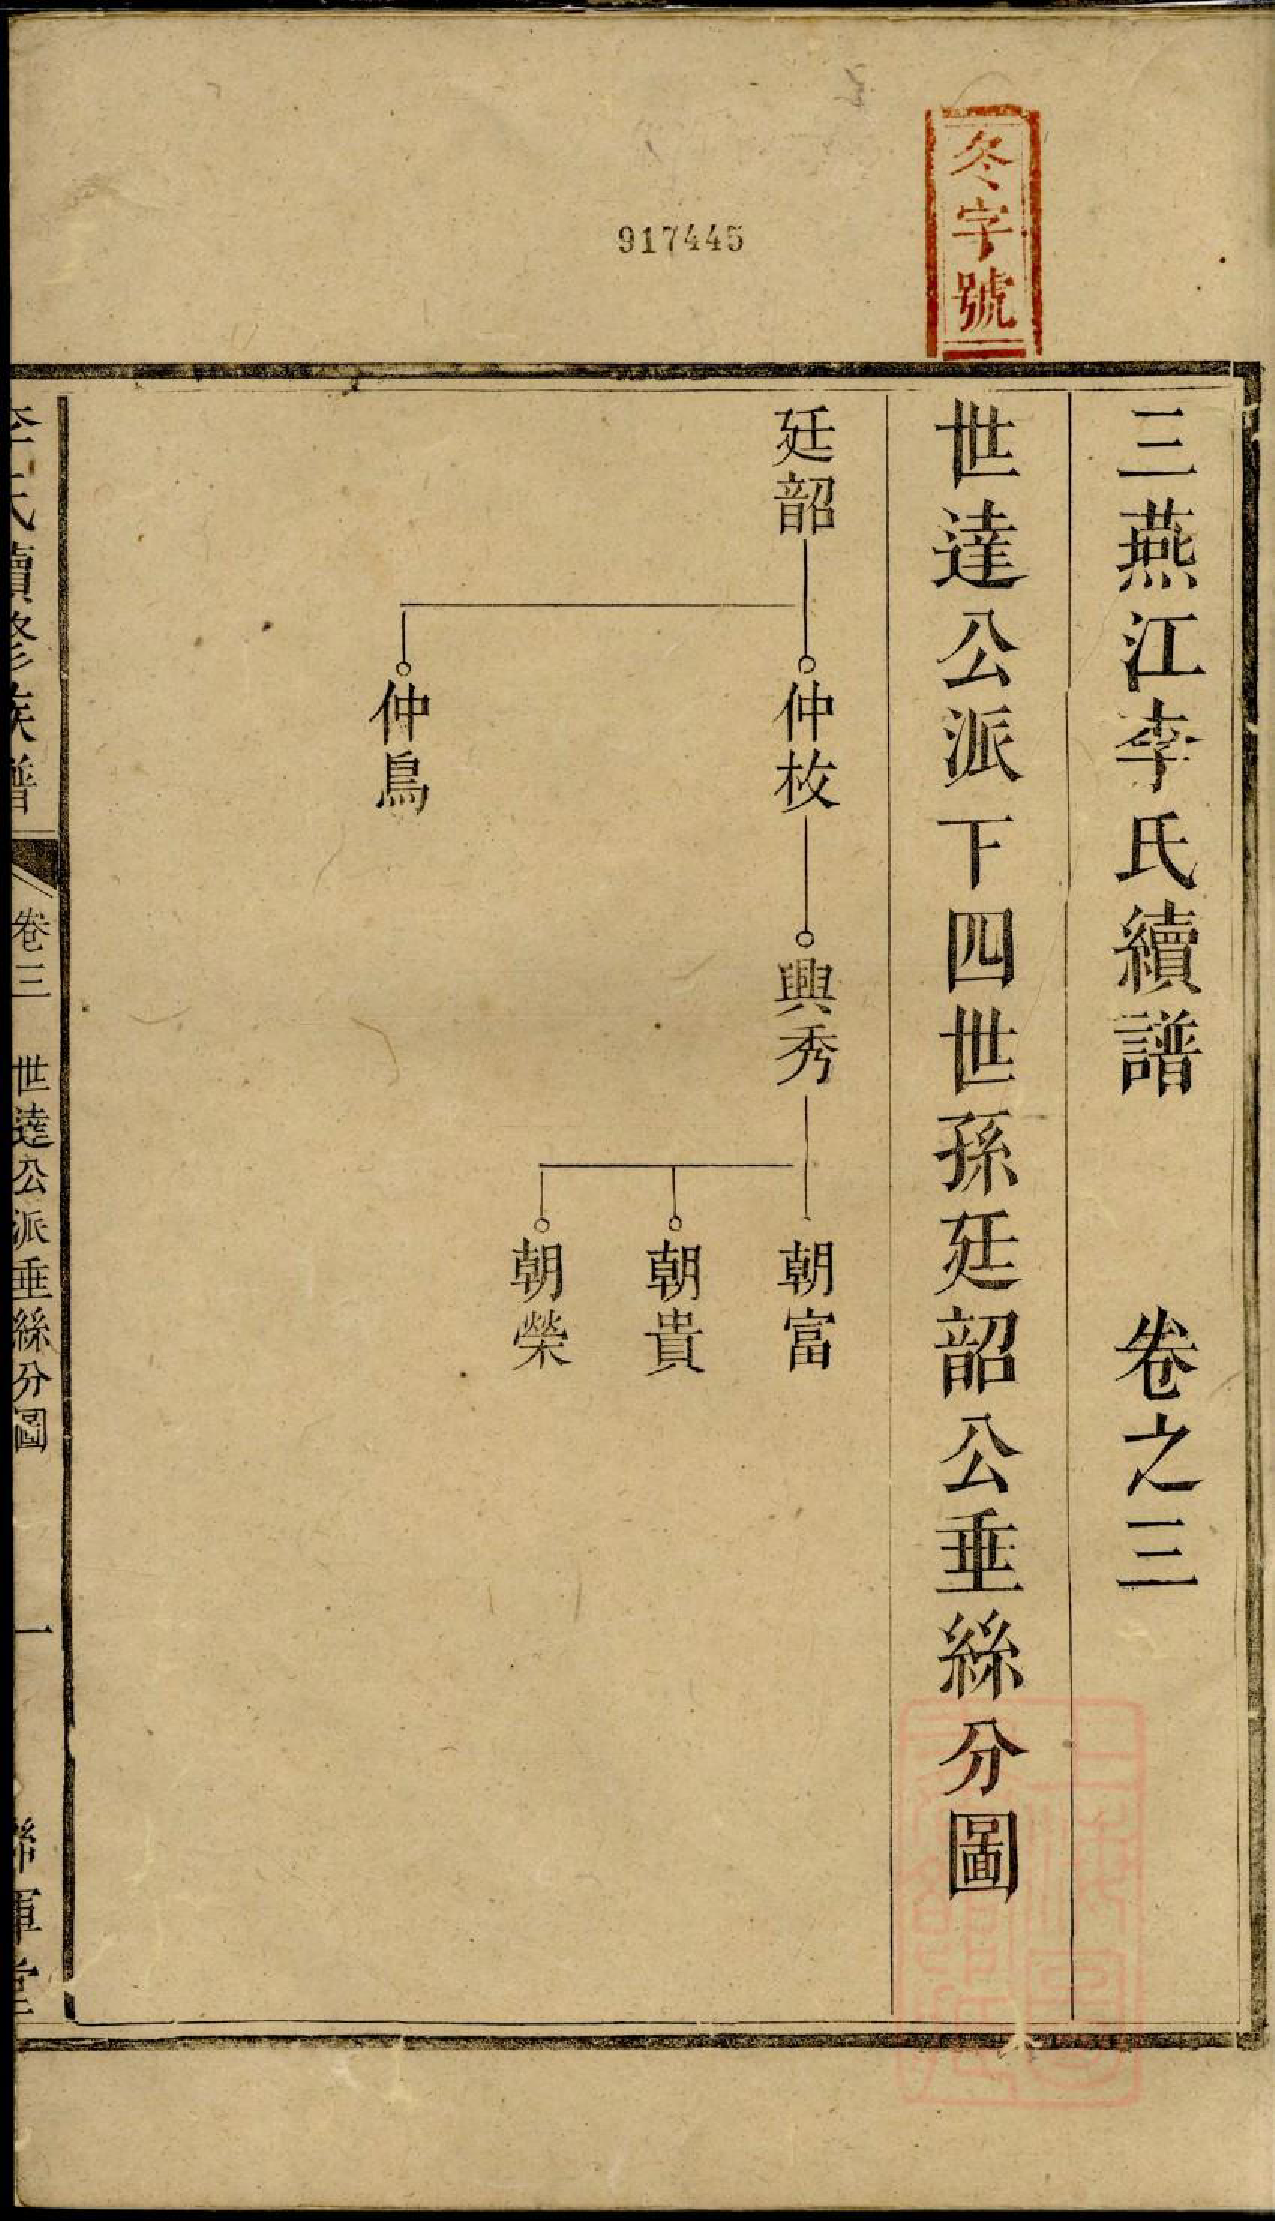 冬字號
917445
三燕江李氏續譜 卷之三
世達公派下四世孫廷韶公垂絲分圖
廷韶
仲枚
仲鳥
興秀
朝富
朝貴
朝榮
李氏續修族譜 卷三 世達公派垂絲分圖 一